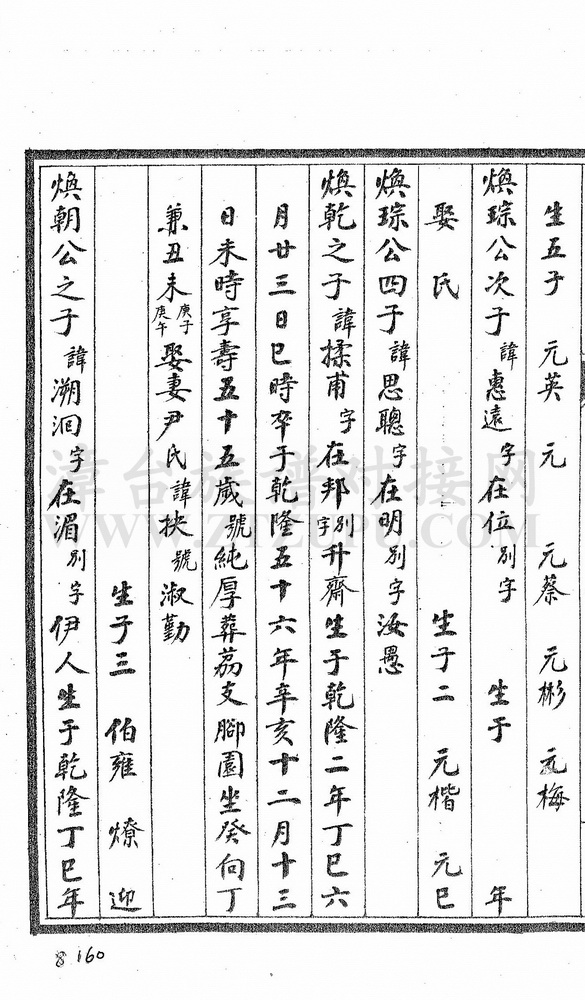 生五子 元英 元 元蔡 元彬 元梅
煥琮公次子諱惠遠字在位別字 生于 年
娶氏 生子二 元楷 元巳
煥琮公四子諱思聰字在明別字汝愚
煥乾之子諱揉甫字在邦別字升齋生于乾隆二年丁巳六
月廿三日巳時卒于乾隆五十六年辛亥十二月十三
日未時享壽五十五歲號純厚葬荔支腳園坐癸向丁
兼丑未庚子庚午娶妻尹氏諱抉號淑勤
生子三 伯雍 燎 迎
煥朝公之子諱溯洄字在湄別字伊人生于乾隆丁巳年
漳台族谱对接网
WWW.ZTZUPU.COM
8 160